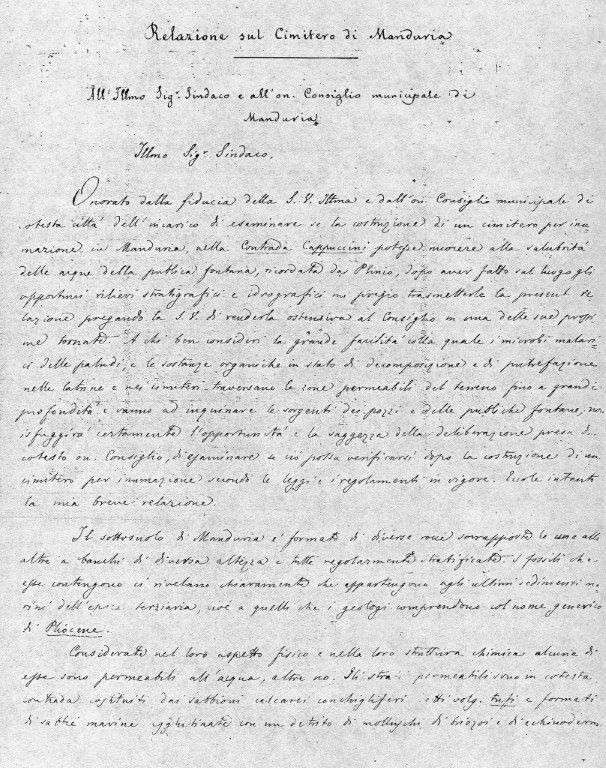 Relazione sul Cimitero di Manduria
All' Illmo Sigr. Sindaco e all'on. Consiglio municipale di
Manduria
Illmo Sigr Sindaco,
Onorato dalla fiducia della S. V. Illma e dall'on. Consiglio municipale di
cotesta città dell'incarico di esaminare se la costruzione di un cimitero per inu
mazione in Manduria, nella Contrada Cappuccini potesse nuocere alla salubrità
delle acque della publica fontana, ricordata da Plinio, dopo aver fatto sul luogo gli
opportuni rilievi stratigrafici e idrografici mi pregio trasmetterle la present re
lazione pregando la S. V. di renderla ostensiva al Consiglio in una delle sue prossi
me tornate. A chi ben consideri la grande facilità colla quale i microbi malari
ci delle paludi, e le sostanze organiche in stato di decomposizione e di putrefazione
nelle latrine e nei cimiteri traversano le zone permeabili del terreno fino a grandi
profondità e vanno ad inquinare le sorgenti dei pozzi e delle publiche fontane, non
isfuggirà certamente l'opportunità e la saggezza della deliberazione presa da
cotesto on. Consiglio, di esaminare se ciò possa verificarsi dopo la costruzione di un
cimitero per inumazione secondo le leggi e i regolamenti in vigore. Eccole intanto
la mia breve relazione.
Il sottosuolo di Manduria è formato di diverse rocce sovrapposte le une alle
altre a banchi di diversa altezza e tutte regolarmente stratificate. I fossili che
esse contengono ci rivelano chiaramente che appartengono agli ultimi sedimenti ma
rini dell'epoca terziaria, cioè a quelli che i geologi comprendono col nome generico
di Pliocene.
Considerate nel loro aspetto fisico e nella loro struttura chimica alcune di
esse sono permeabili all'acqua, altre no. Gli strati permeabili sono in cotesta
contrada costituiti dai sabbioni calcarei conchigliferi detti volg. tufi e formati
di sabbie marine agglutinate con un detrito di molluschi, di briozoi e di echinodermi